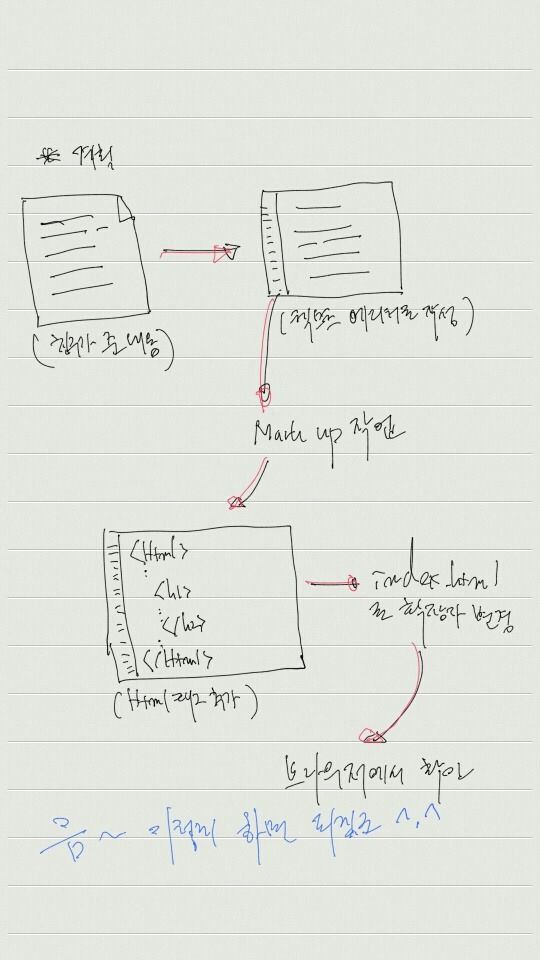 * 계획
(친구가 준 내용)
(텍스트 에디터로 작성)
Mark up 작업
<Html>
<h1>
</h1>
</Html>
(Html 태그 추가)
index.html
로 확장자 변경
브라우저에서 확인
음~ 이렇게 하면 되겠죠 ^.^